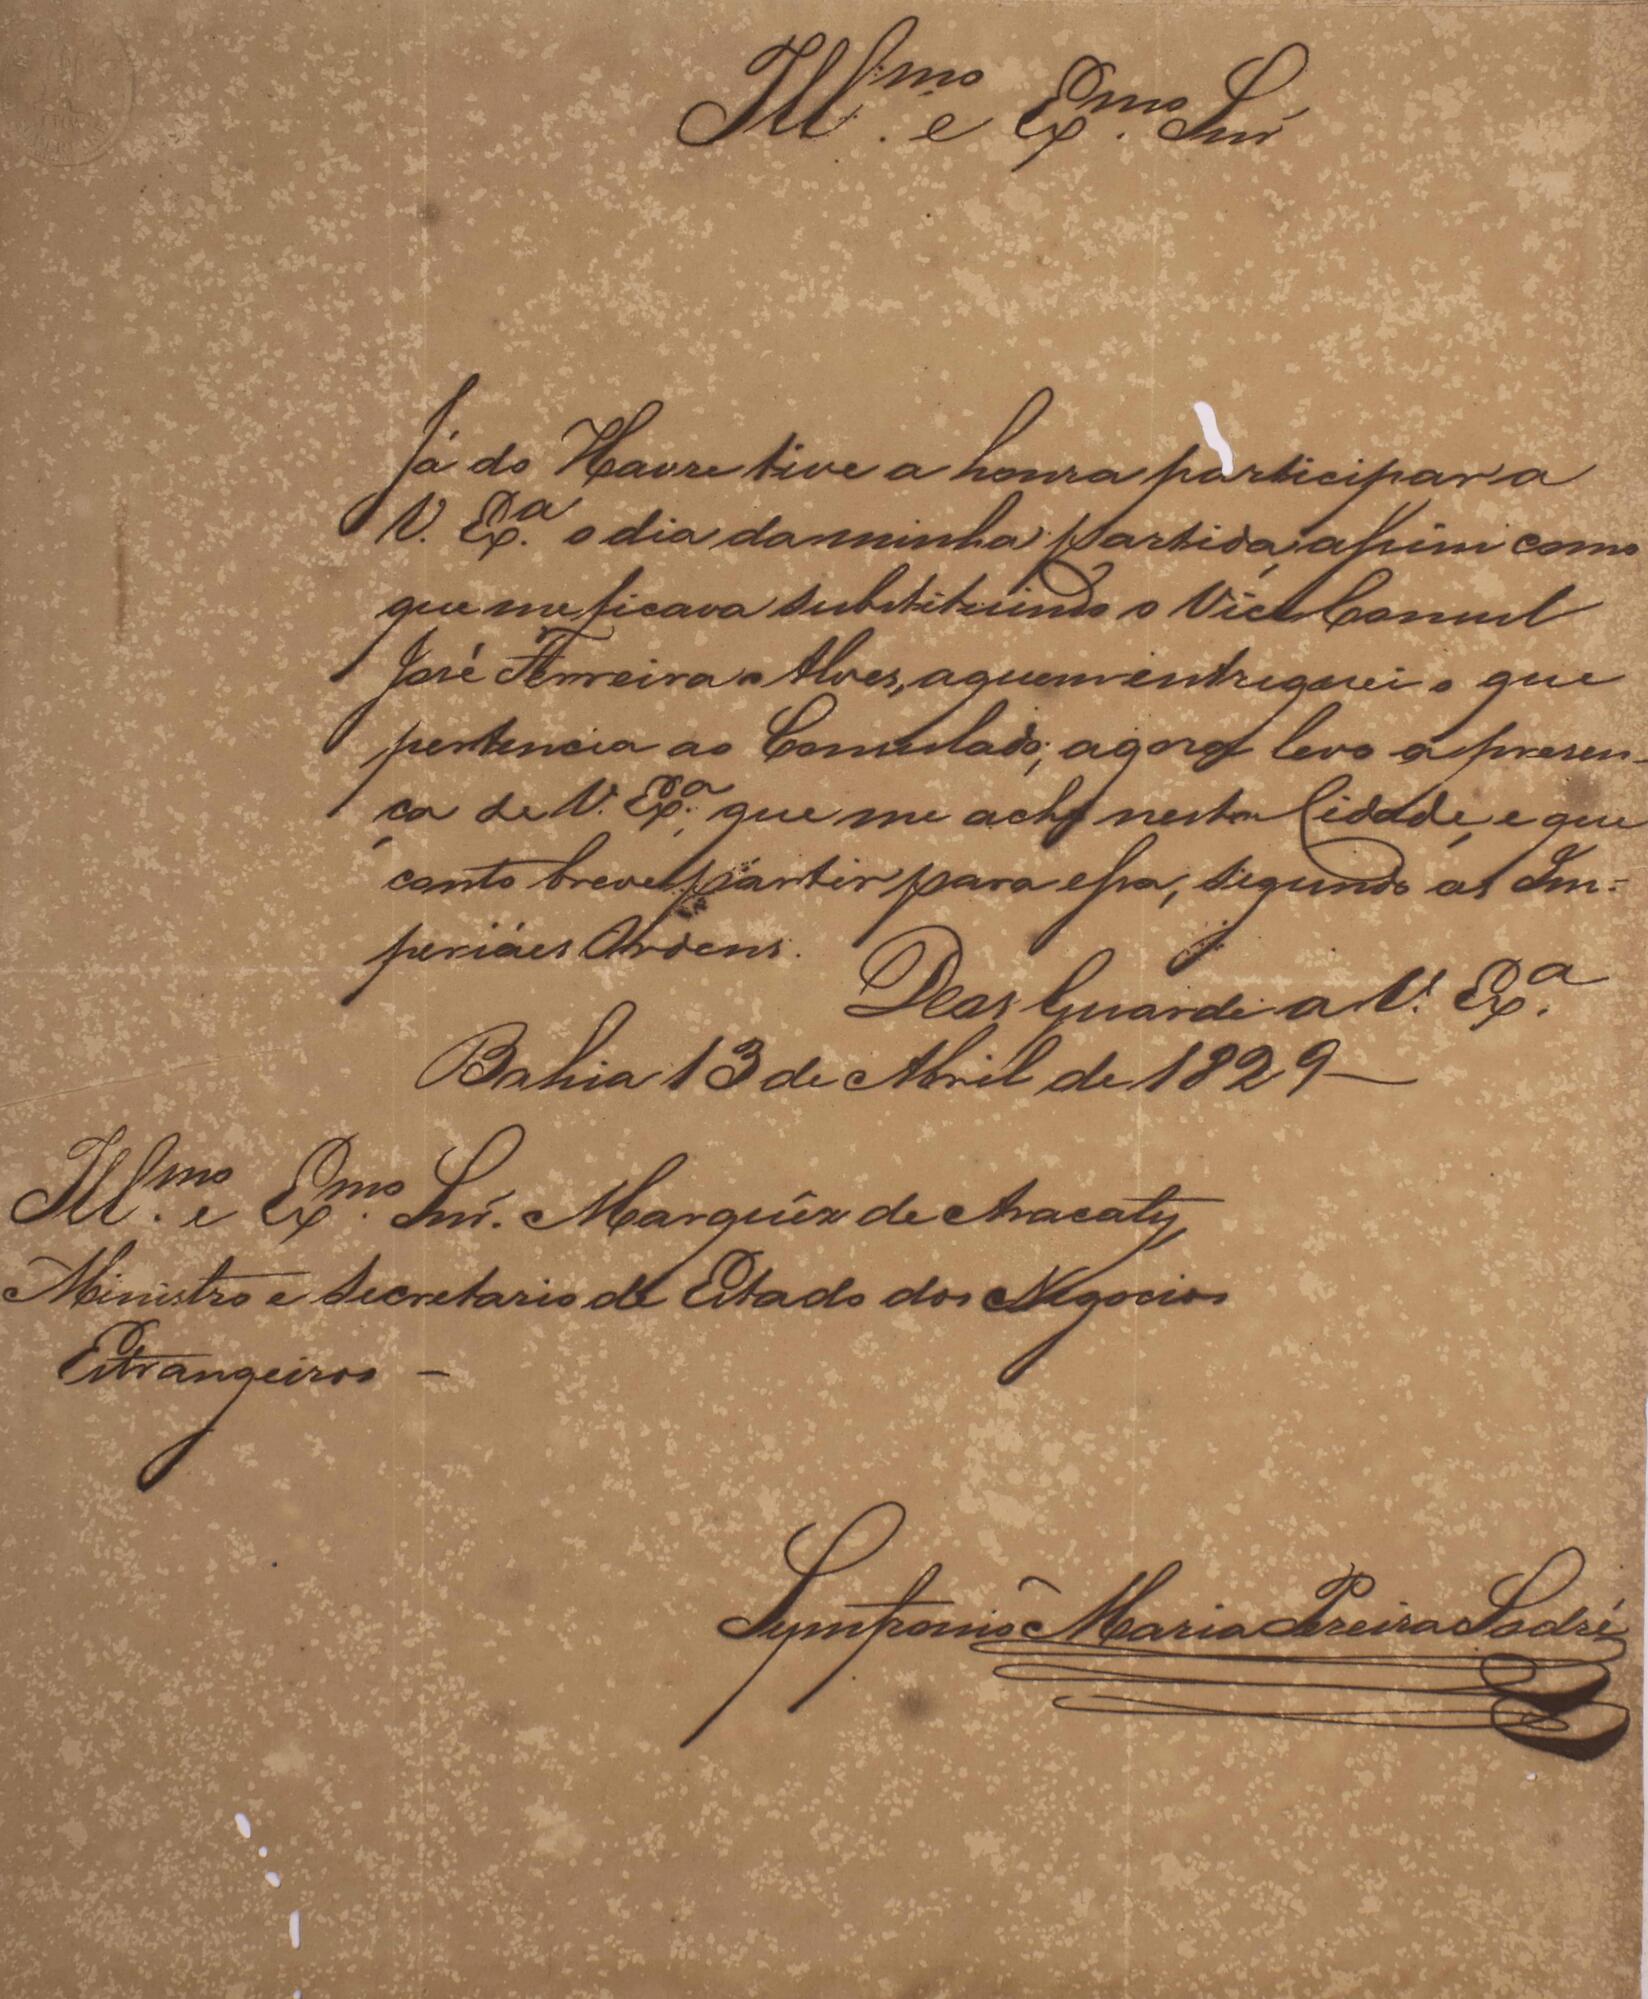 Ill.mo e Ex.mo Snr
Já do Havre tive a honra participar a
V. Ex.a o dia da minha partida, assim como
que me ficava substituindo o Vice Consul
José Ferreira Alves, a quem entreguei o que
pertencia ao Consulado; agora levo a presen-
ça de V. Ex.a, que me acho nesta Cidade, e que
conto breve partir para essa, segundo as Im-
periáes Ordens.
Deos Guarde a V. Ex.a
Bahia 13 de Abril de 1829—
Ill.mo e Ex.mo Snr. Marquêz de Aracaty
Ministro e Secretario de Estado dos Negocios
Estrangeiros —
Symfronio Maria Pereira Sodré